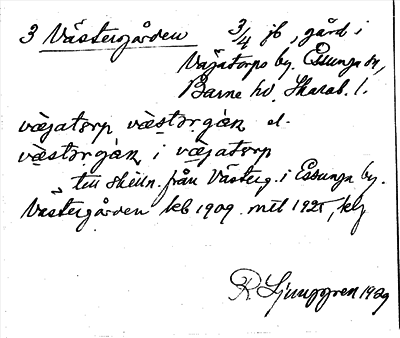 3 Västergården 3/4 jb, gård i
Vājatorps by. Essunga sn,
Barne hd. Skarab. l.
vœ̀jatɔrp vœ̀stərgàn el.
vœ̀stərgàn i vœ̀jatɔrp
till skilln. från Västerg. i Essunga by.
Västergården kb 1909. mtl 1925, kg
R Ljunggren 1929